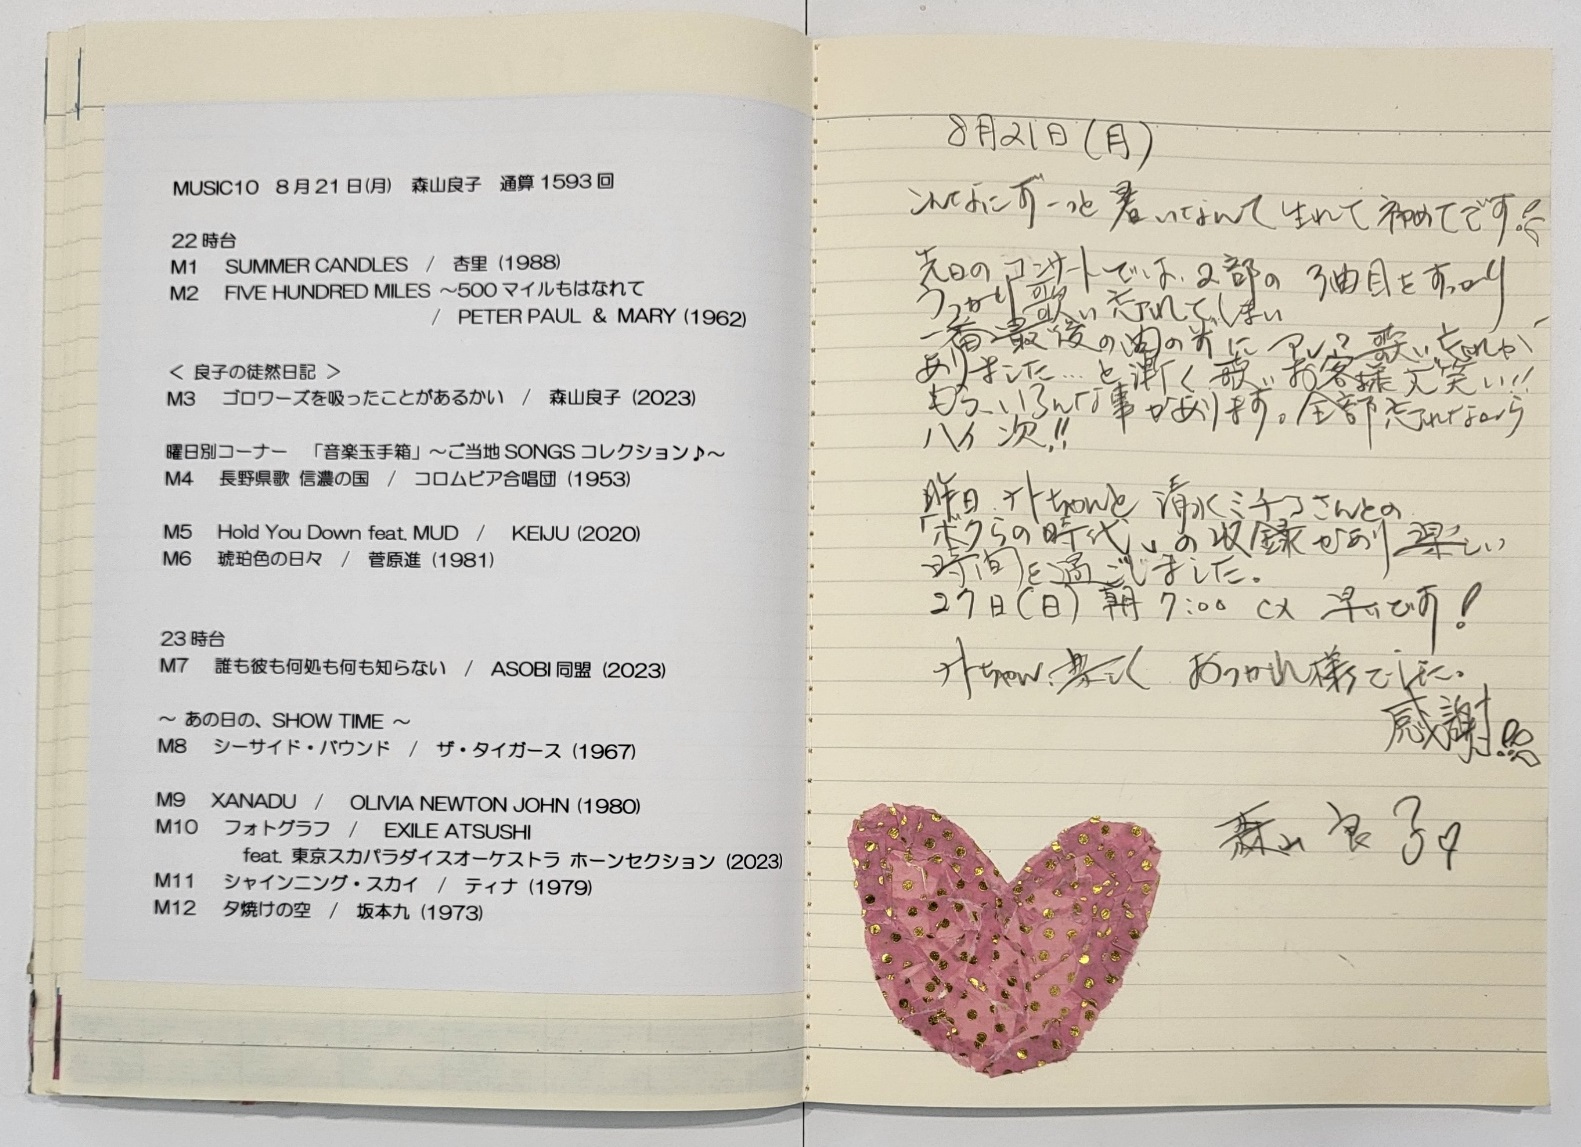 MUSIC10 8月21日(月) 森山良子 通算1593回
22時台
M1 SUMMER CANDLES / 杏里 (1988)
M2 FIVE HUNDRED MILES ～500マイルもはなれて
/ PETER PAUL & MARY (1962)
< 良子の徒然日記 >
M3 ゴロワーズを吸ったことがあるかい / 森山良子 (2023)
曜日別コーナー 「音楽玉手箱」～ご当地SONGSコレクション♪～
M4 長野県歌 信濃の国 / コロムビア合唱団 (1953)
M5 Hold You Down feat. MUD / KEIJU (2020)
M6 琥珀色の日々 / 菅原進 (1981)
23時台
M7 誰も彼も何処も何も知らない / ASOBI同盟 (2023)
～ あの日の、SHOW TIME ～
M8 シーサイド・バウンド / ザ・タイガース (1967)
M9 XANADU / OLIVIA NEWTON JOHN (1980)
M10 フォトグラフ / EXILE ATSUSHI
feat. 東京スカパラダイスオーケストラ ホーンセクション (2023)
M11 シャインニング・スカイ / ティナ (1979)
M12 夕焼けの空 / 坂本九 (1973)
8月21日(月)
こんなにずーっと暑いなんて生れて初めてです。
先日のコンサートでは、2部の3曲目をすっかり
うっかり歌い忘れてしまい
一番最後の曲の前にアレ?歌い忘れが
ありました…と漸く歌い お客様大笑い!!
もう、いろんな事があります。全部忘れながら
ハイ 次!!
昨日 ナオちゃんと 清水ミチコさんとの
「ボクらの時代」の収録があり 楽しい
時間を過ごしました。
27日(日)朝7:00 CX 早いです!
ナオちゃん、 おつかれ様でした。
感謝!
森山良子